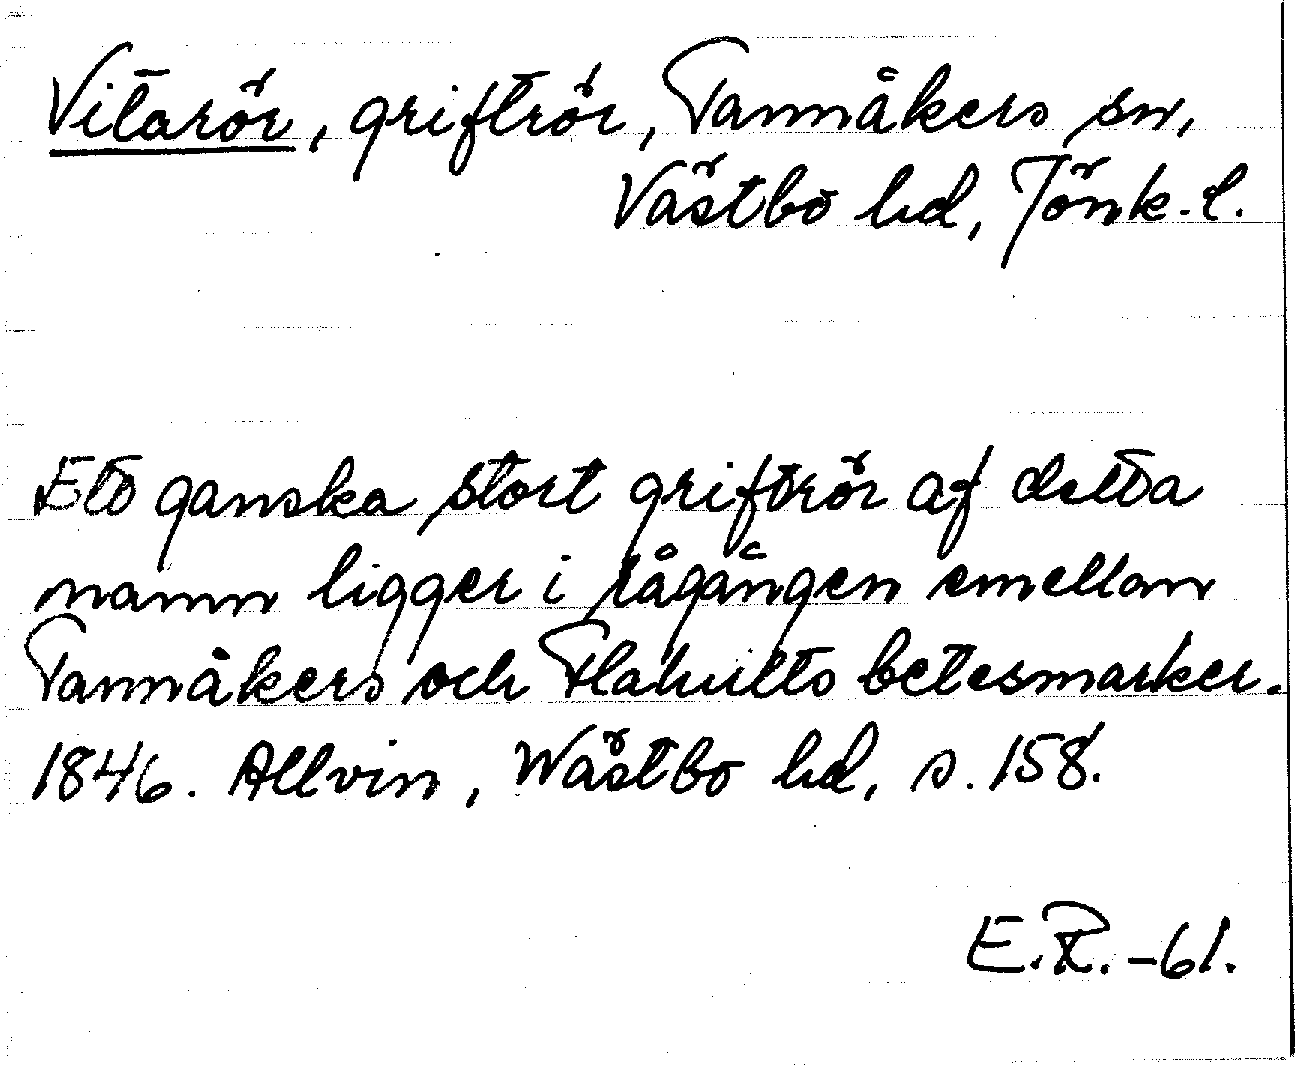 Vitarör, griftrör, Tannåkers sn,
Västbo hd, Jönk. l.
Ett ganska stort griftrör af detta
namn ligger i rågången emellan
Tannåkers och Flahults betesmarker.
1846. Allvin, Wästbo hd, s. 158.
E.R. -61.